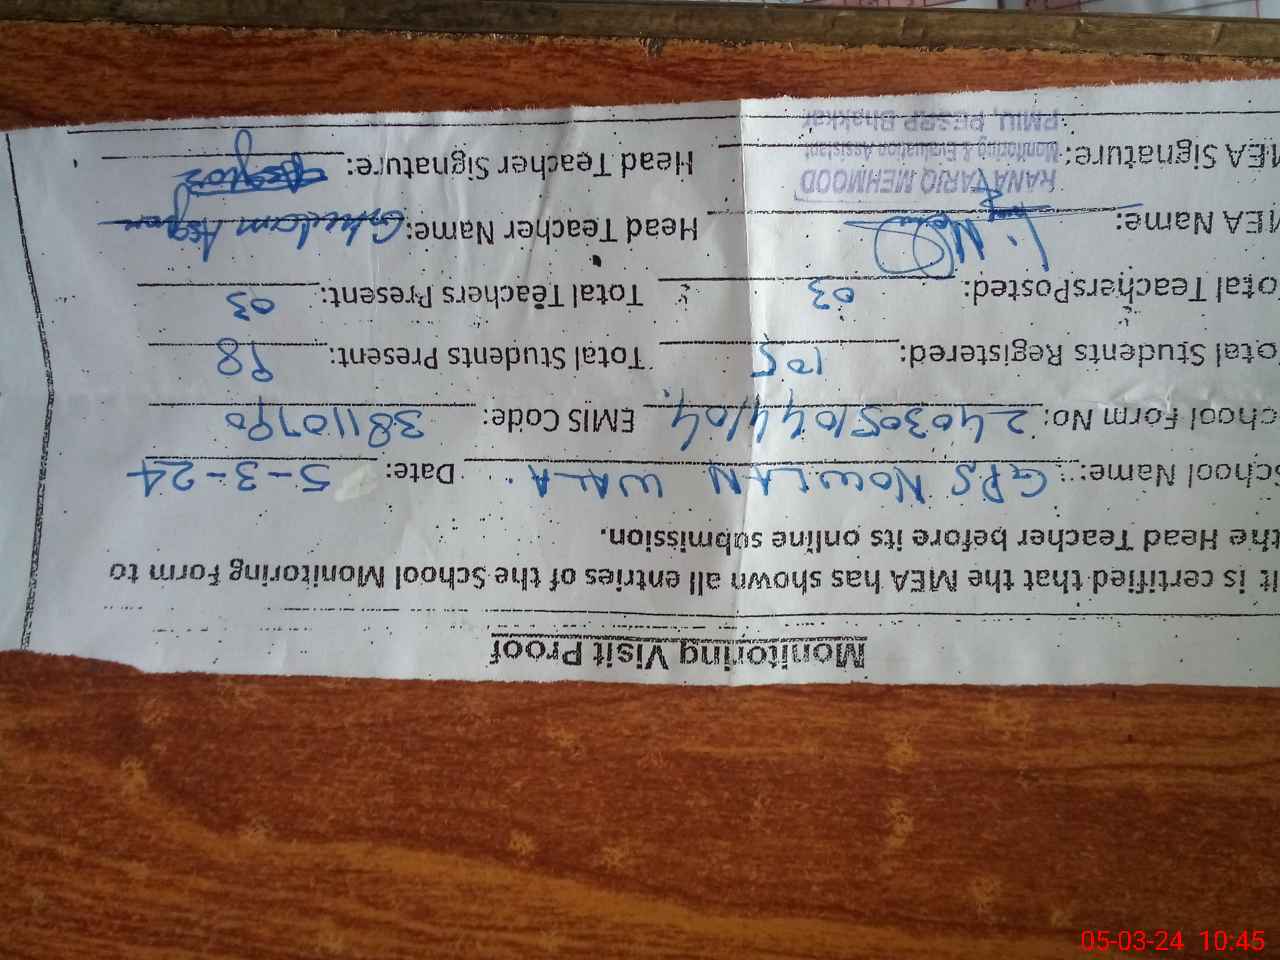 Monitoring Visit Proof
It is certified that the MEA has shown all entries of the School Monitoring Form to
the Head Teacher before its online submission.
School Name: GPS NOWLAN WALA Date: 5-3-24
School Form No: 240305/044/04 EMIS Code: 38110790
Total Students Registered: 105 Total Students Present: 98
Total TeachersPosted: 03 Total Teachers Present: 03
MEA Name: Head Teacher Name: Ghulam Asghar
MEA Signature: Head Teacher Signature:
RANA TARIQ MEHMOOD
Monitoring & Evaluation Assistant
PMIU, PESRP Bhakkar
05-03-24 10:45